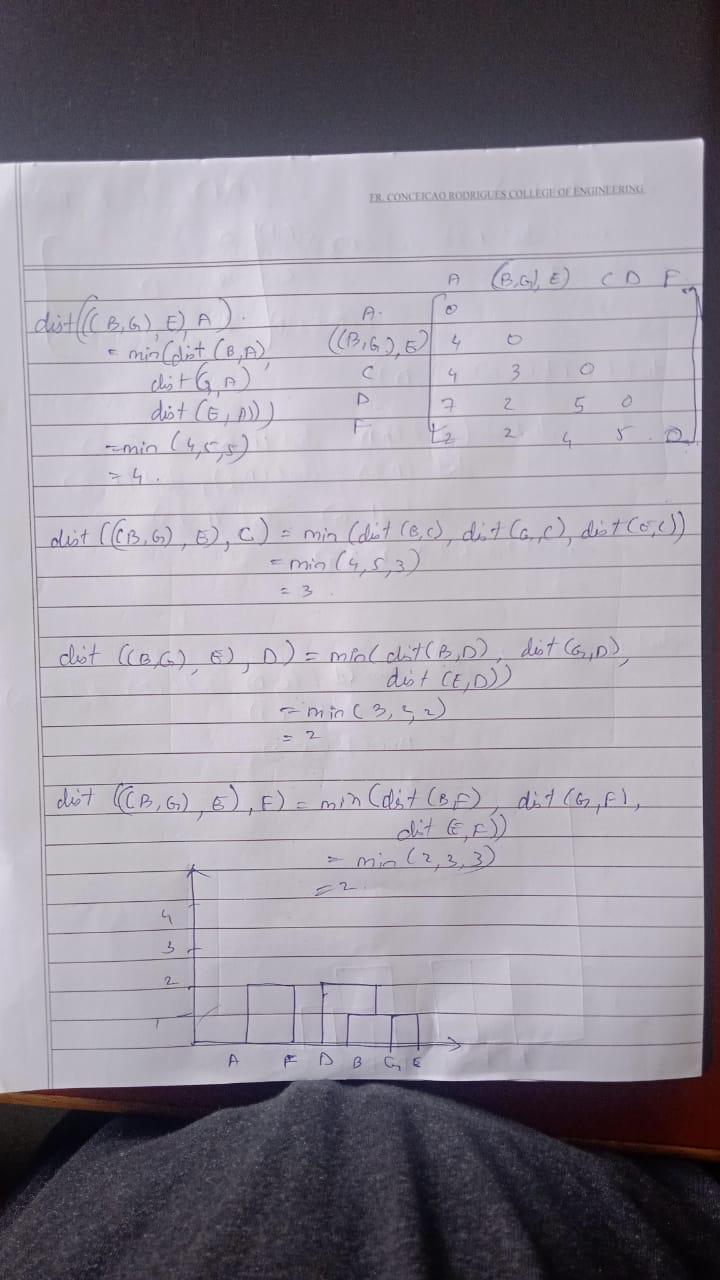 FR. CONCEICAO RODRIGUES COLLEGE OF ENGINEERING
A (B,G), E) C D F
dist(((B,G), E), A).
= min(dist (B,A),
dist (G, A)
dist (E, A))
= min (4,5,5)
= 4.
A. 0
((B,G), E) 4 0
C 4 3 0
D 7 2 5 0
F 2 2 4 5 0
dist (((B,G), E), C) = min (dist (B,C), dist (G,C), dist (E,C))
= min (4,5,3)
= 3.
dist ((B,G), E), D) = min( dist(B,D), dist (G,D),
dist (E,D))
= min (3, 3, 2)
= 2
dist (((B,G), E), F) = min (dist (B,F), dist (G,F),
dist (E,F))
= min (2,3,3)
= 2.
4
3
2
1
A F D B G E